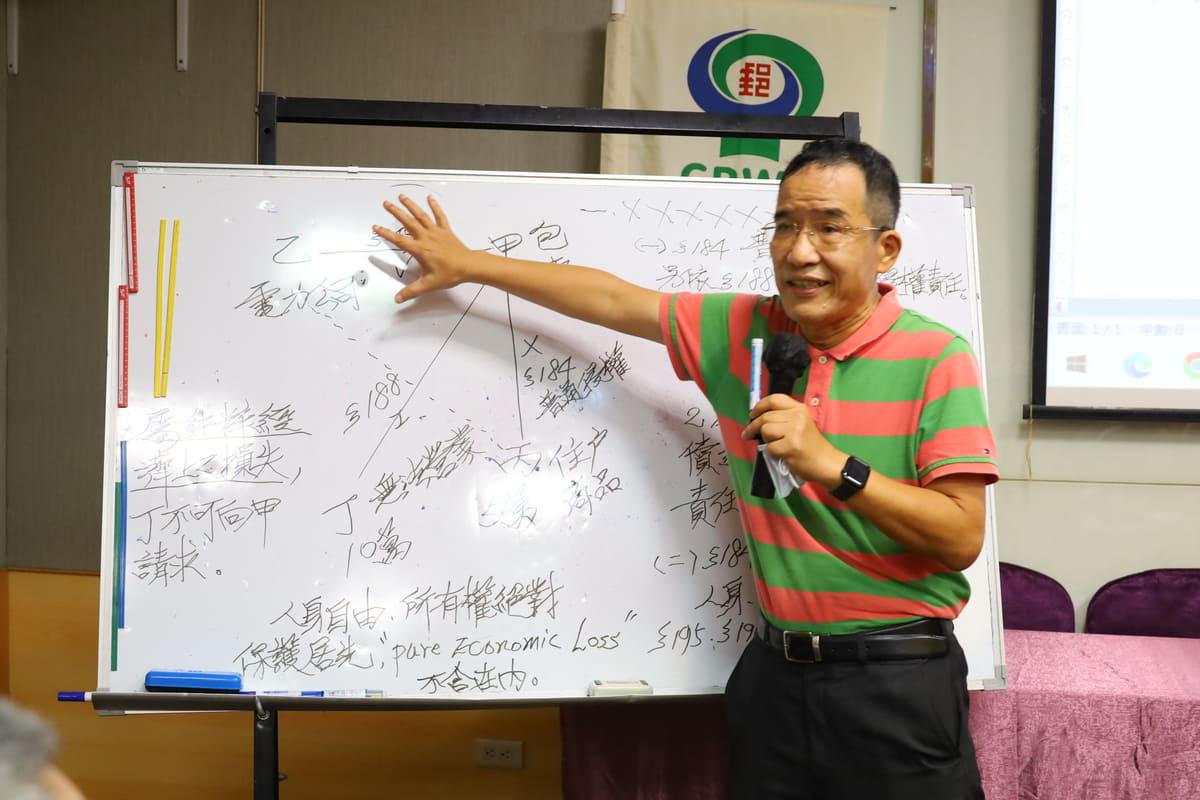 郵
乙
甲 包
電力公司
一、XXXXXX
(一) §184
§188
權責任。
§188
X
§184
普通侵權
屬純粹經
濟上損失,
丁不可向甲
請求。
丁
10萬
丙 住戶
商品
債
責任
(二) §184
人身
人身自由、所有權絕對
保護居先,"pure Economic Loss"
不含在內。
§195、§19
頁面:1/1 字數:0